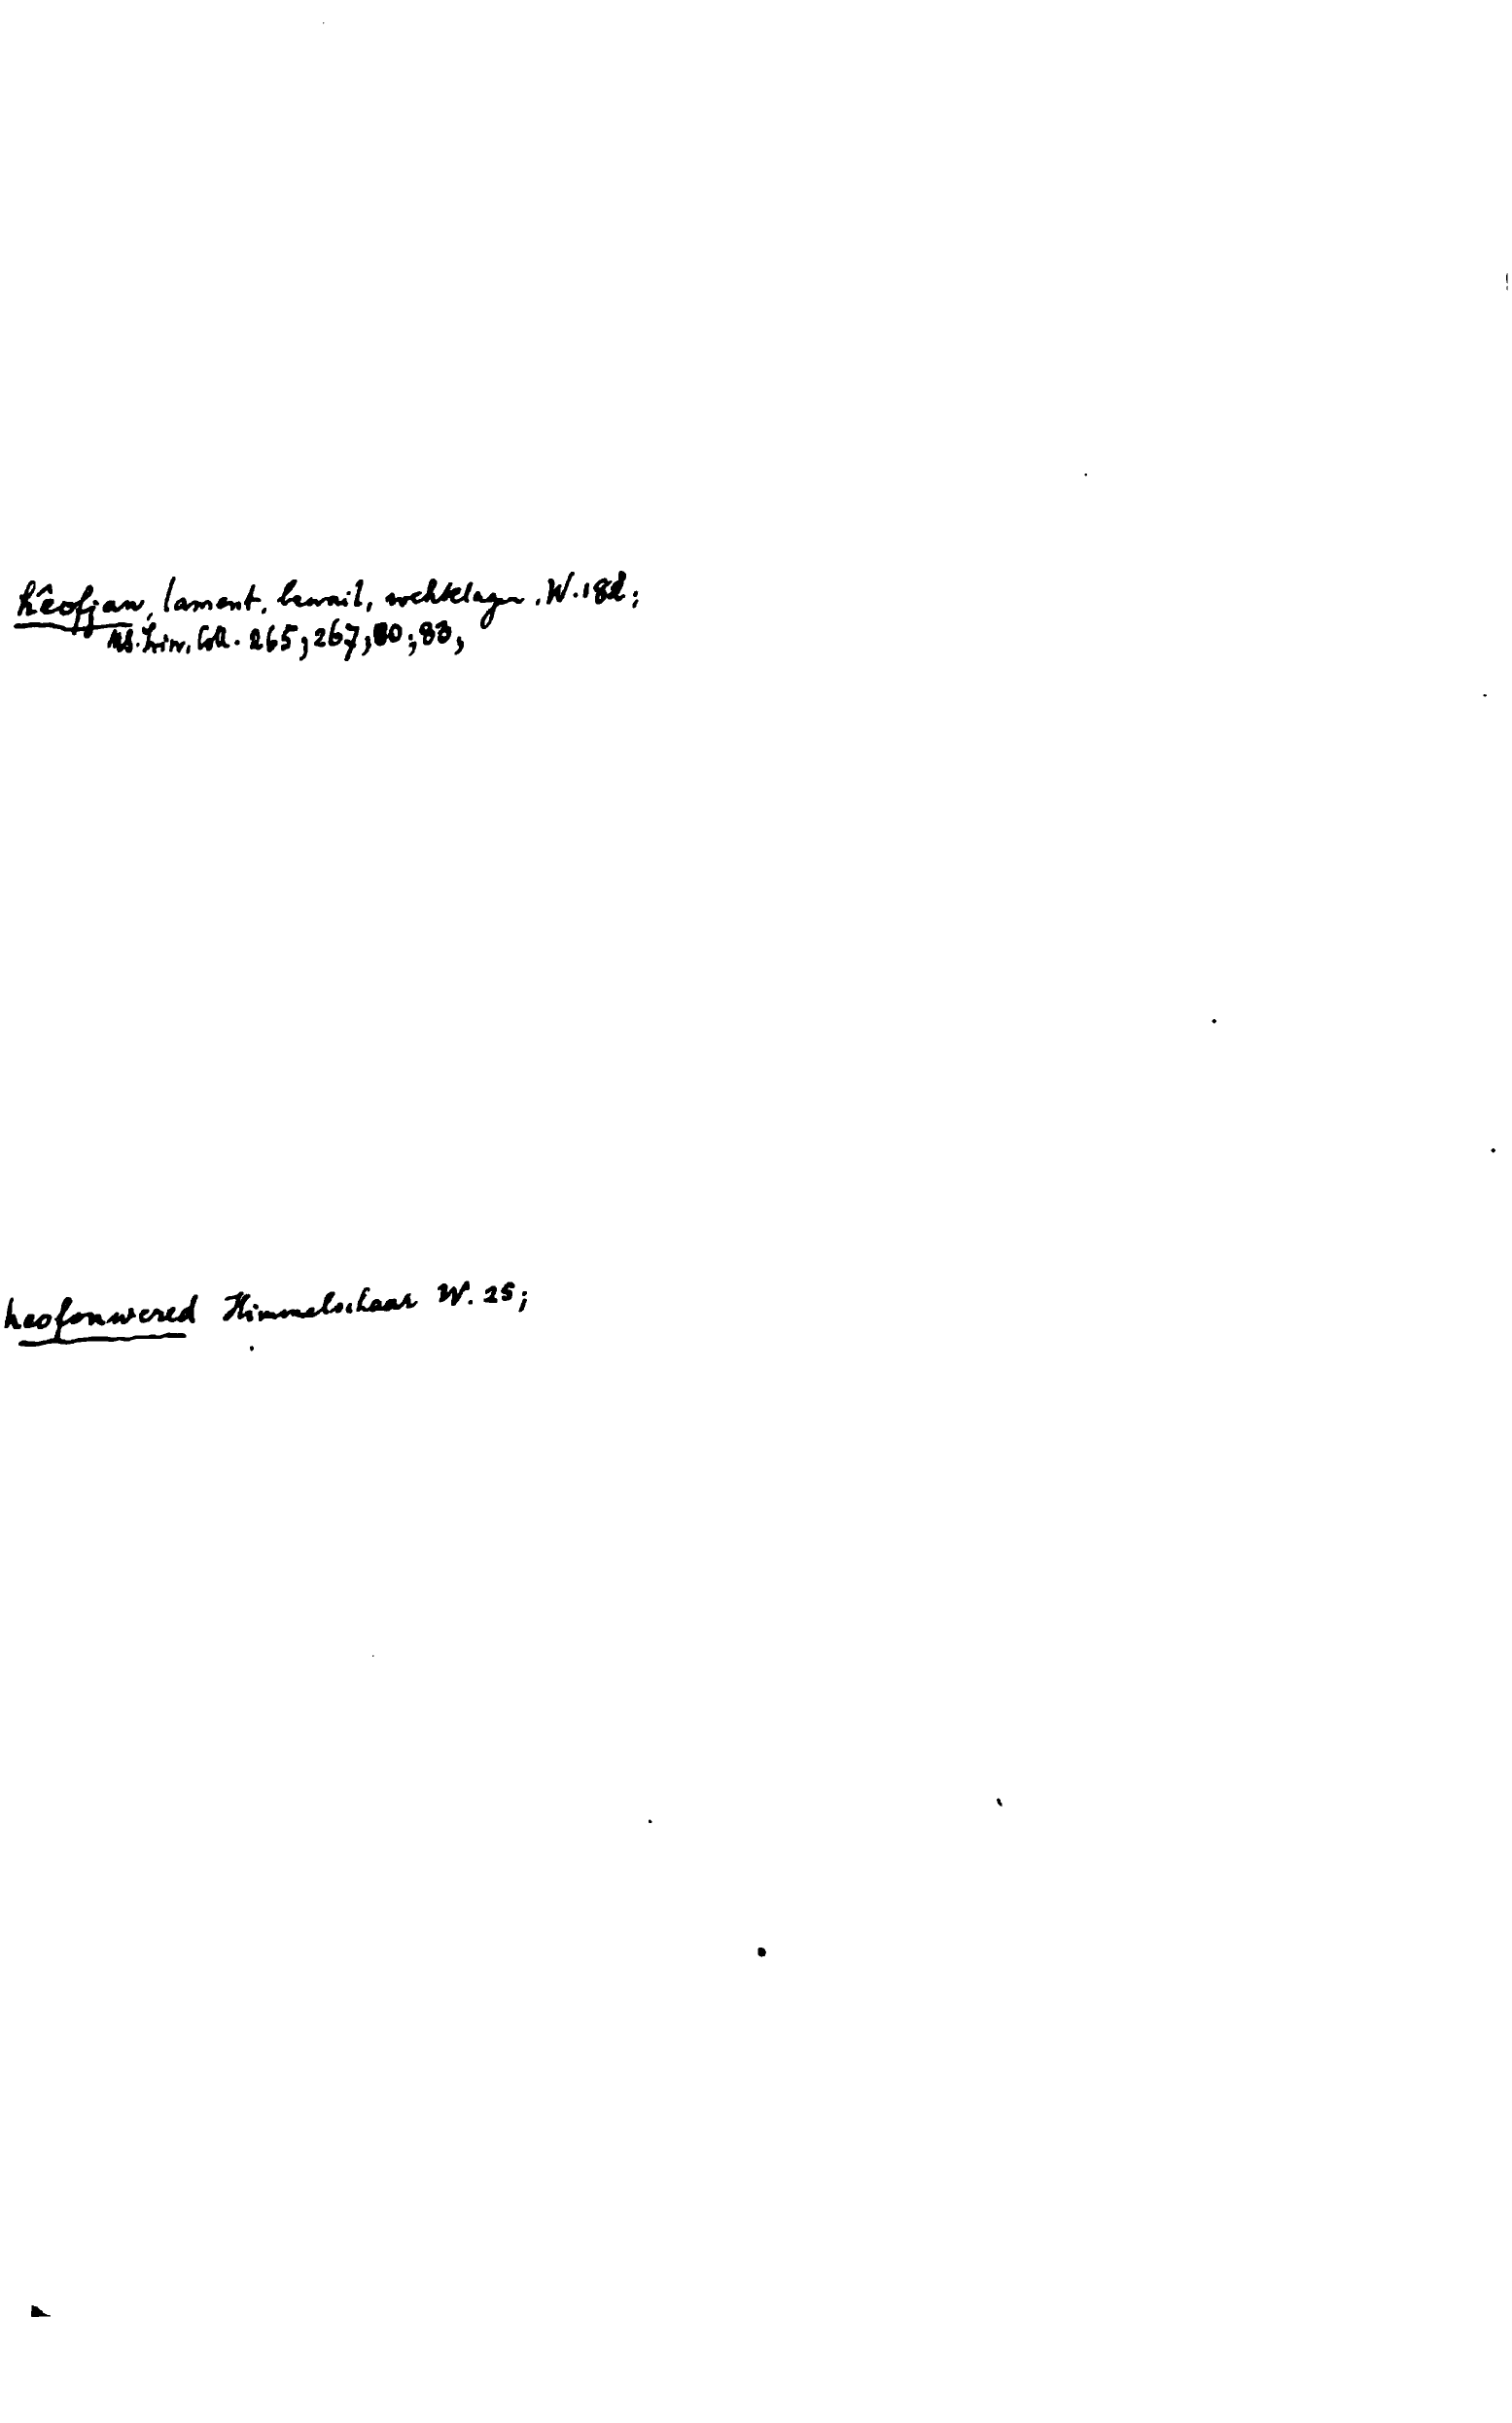 hêofjan, lament, bewail, wehklagen. W. 182;
Ms. Trin. Coll. 265; 267; 80; 83,
heofonwered Himmelschaar W. 25;